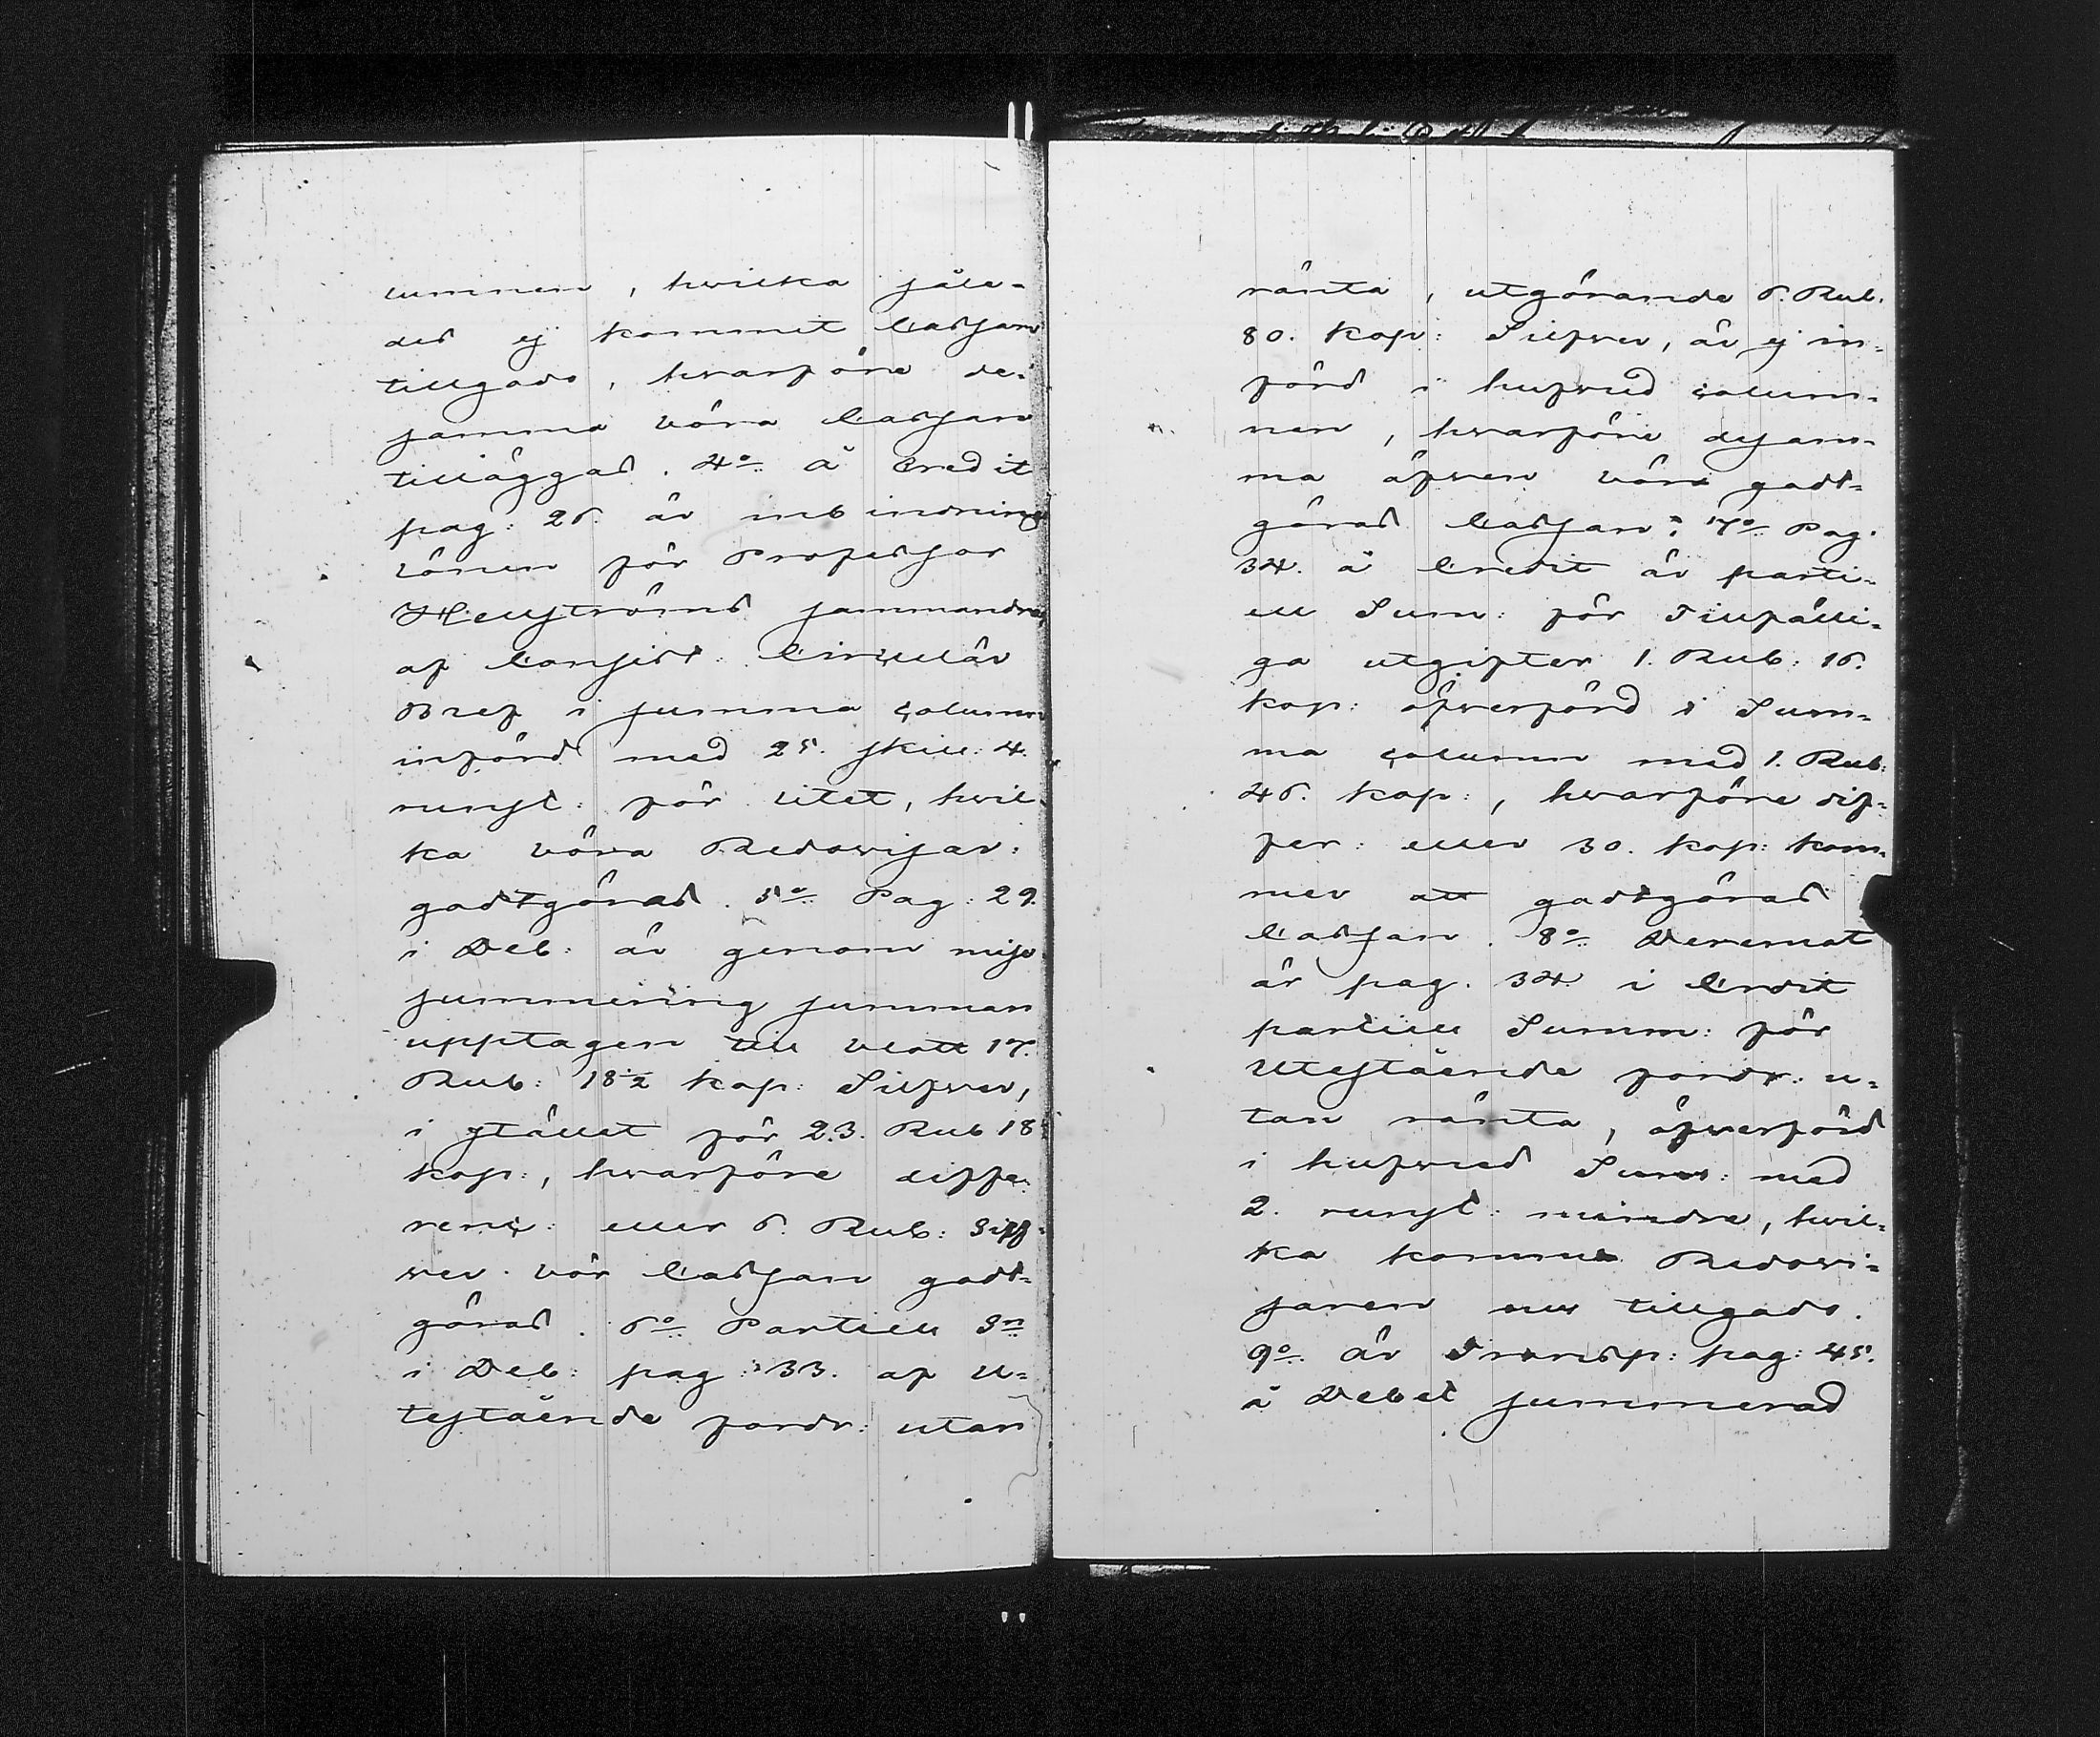 lumnen, hvilka såle-
des ej kommit Cassan
tillgodo, hvarföre de-
samma böra Cassan
tilläggas. 4:o å Credit
pag: 26. är inbindnings
lönen för Professor
Hellströms sammandrag
af Consist: Circulär
Bref i summa column
införd med 25. skill: 4.
runst: för litet, hvil-
ka böra Redovisar:
godtgöras. 5:o Pag: 29.
i Deb: är genom miss
summering summan
upptagen till blott 17.
Rub: 18½ kop: Silfver,
i stället för 23. Rub 18½
kop:, hvarföre diffe-
rens: eller 6. Rub: Silf-
ver bör Cassan godt-
göras. 6:o Partiell Sn
i Deb: pag: 33. af U-
testående fordr: utan
ränta, utgörande 6. Rub.
80. kop: Silfver, är ej in-
förd i hufvud column-
nen, hvarföre desam-
ma äfven böra godt-
göras Cassan; 7:o Pag:
34. å Credit är parti-
ell Sum: för Tillfälli-
ga utgifter 1. Rub: 16.
kop: öfverförd i Sum-
ma column med 1. Rub:
46. kop:, hvarföre dif-
fer: eller 30. kop: kom-
mer att godtgöras
Cassan. 8:o Deremot
är pag. 34 i Credit
partiell Summ: för
Utestående fordr: u-
tan ränta, öfverförd
i hufvud Sum: med
2. runst: mindre, hvil-
ka komma Redovi-
saren till tillgodo.
9:o är Transp: pag: 45.
å Debet summerad